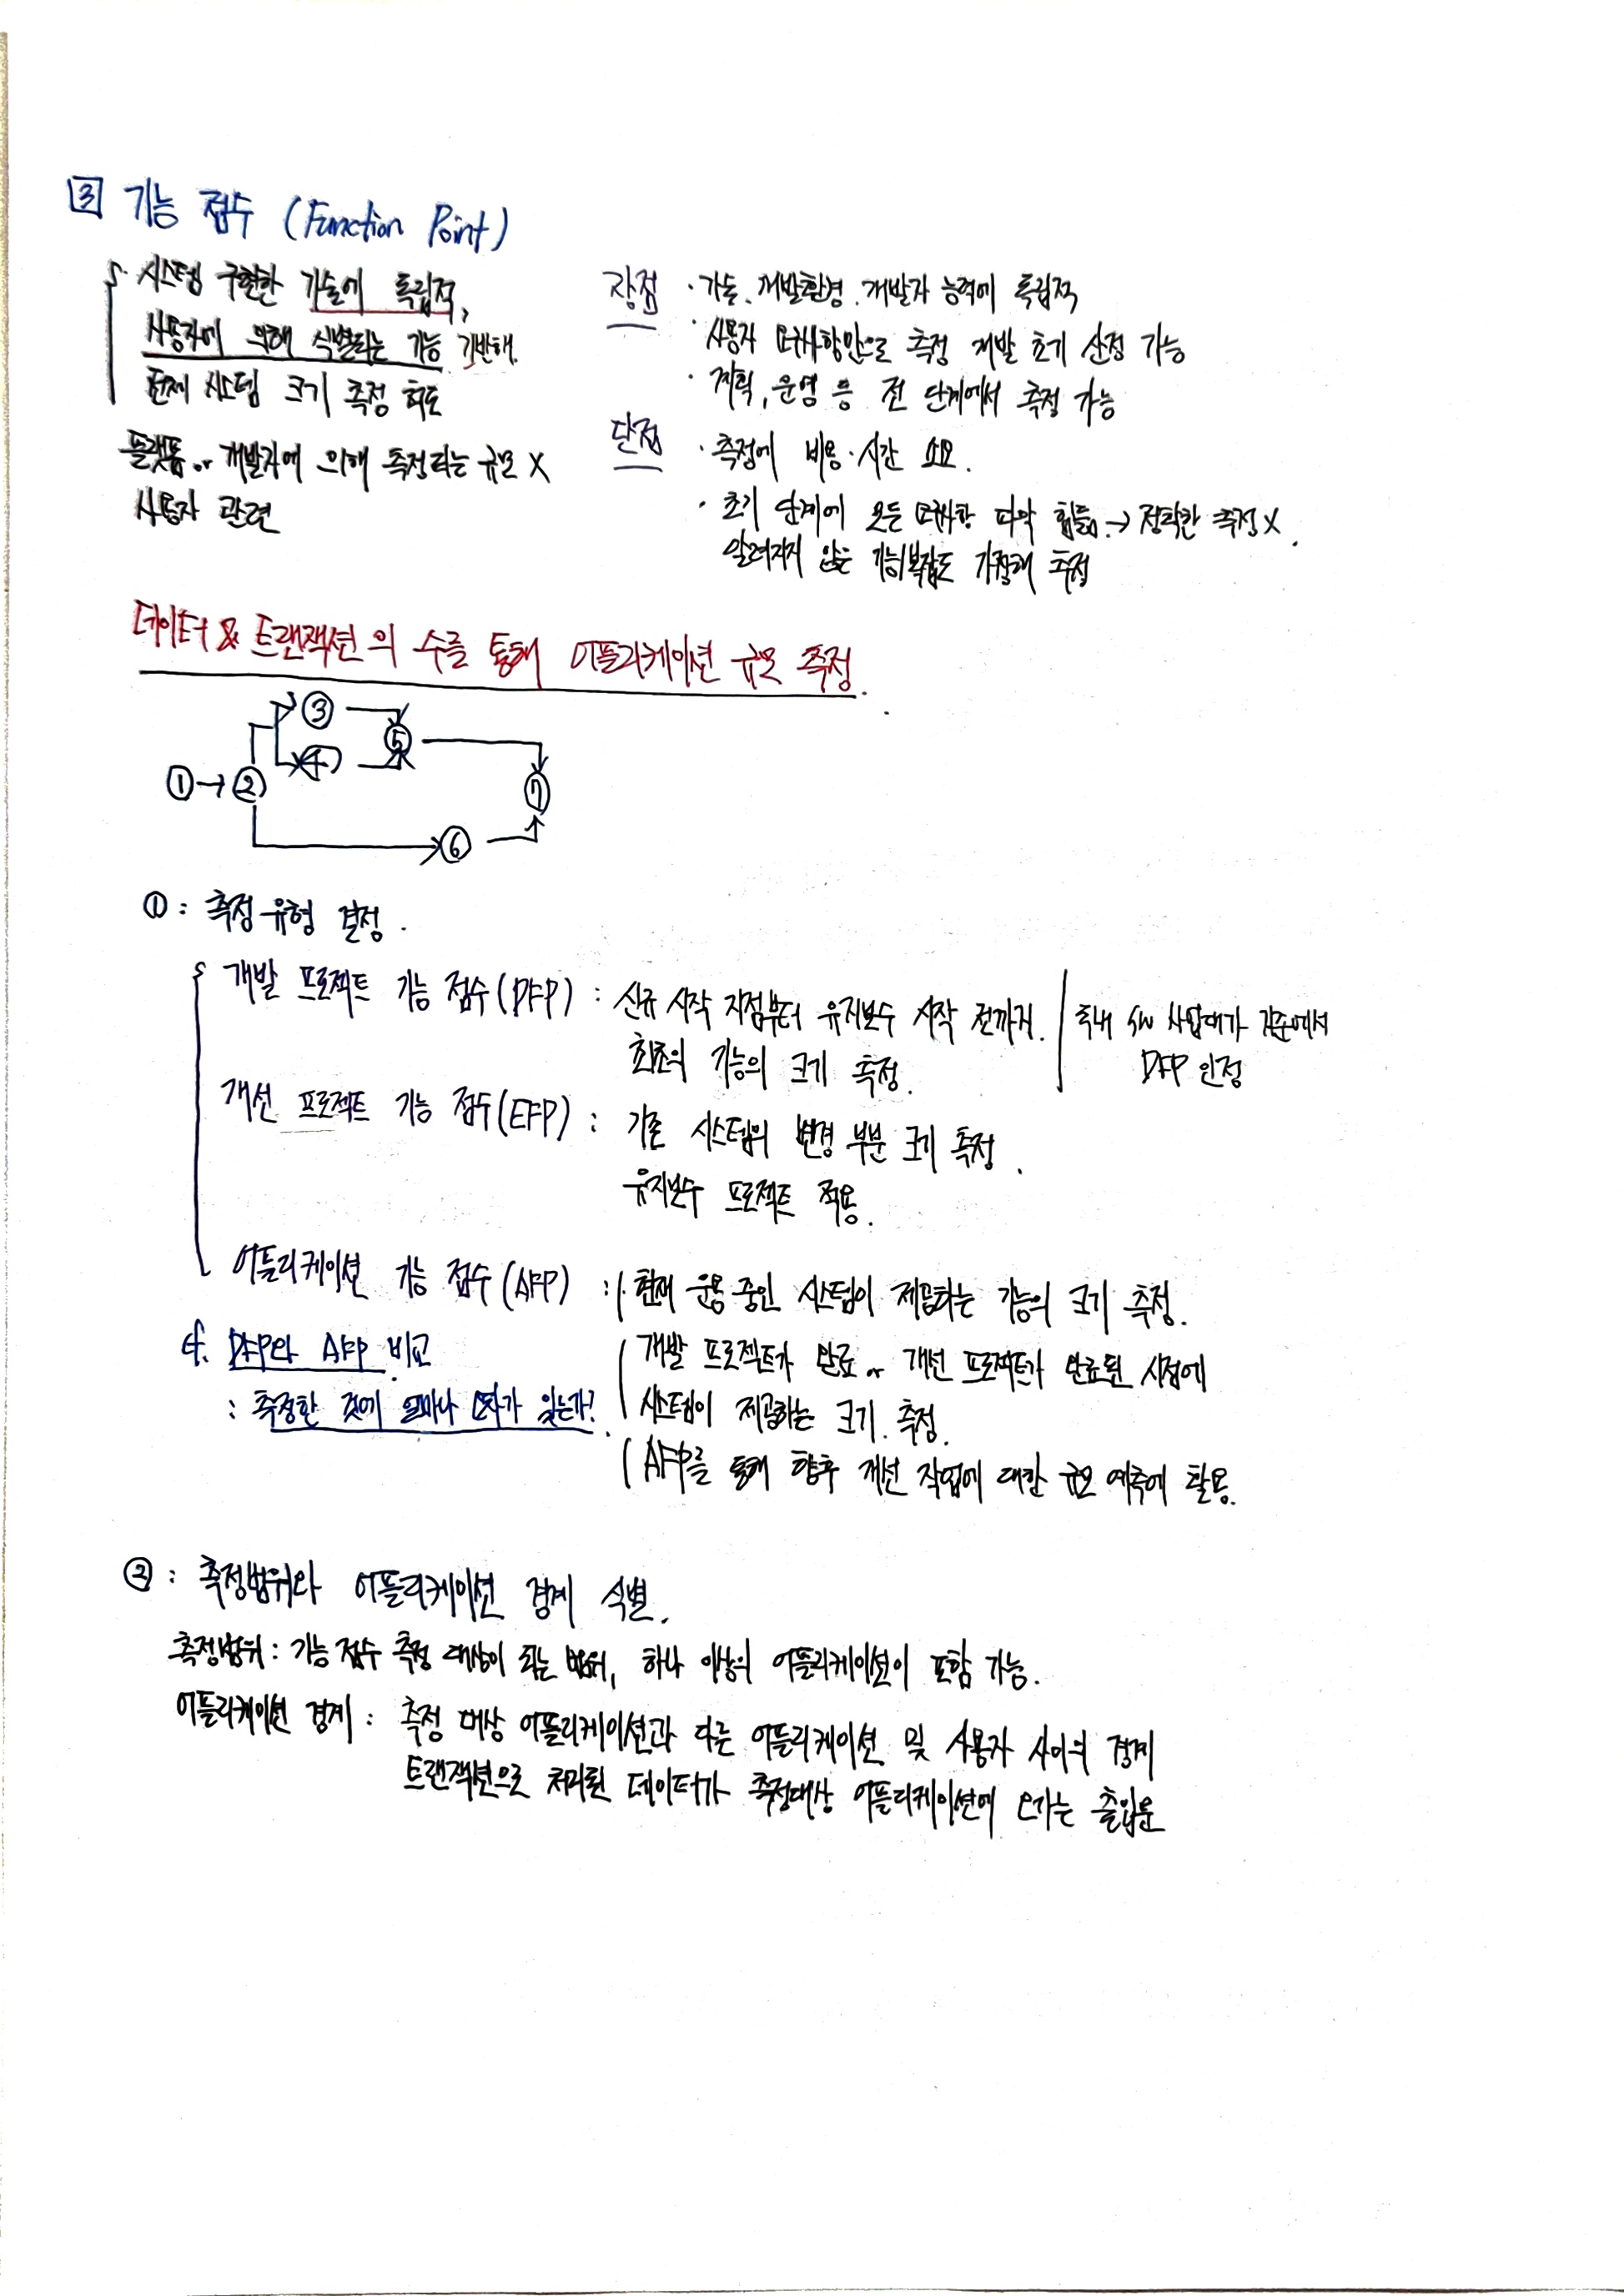 3 기능 점수 (Function Point)
· 시스템 구현한 기술에 독립적,
사용자에 의해 식별되는 기능 기반해.
전체 시스템 크기 측정 척도
플랫폼 or 개발자에 의해 측정되는 규모 X
사용자 관련
장점 · 기술. 개발환경. 개발자 능력에 독립적
· 사용자 요구사항만으로 측정 개발 초기 산정 가능
· 계획, 운영 등 전 단계에서 측정 가능
단점 · 측정에 비용·시간 소요.
· 초기 단계에 모든 요구사항 파악 힘듦. → 정확한 측정 X.
알려지지 않은 기능복잡도 가정해 측정
데이터 & 트랜잭션의 수를 통해 어플리케이션 규모 측정.
③
⑤
④
① → ②
⑦
⑥
① : 측정 유형 결정.
개발 프로젝트 기능 점수(DFP) : 신규 시작 지점부터 유지보수 시작 전까지.
최초의 기능의 크기 측정.
국내 SW 사업대가 기준에서
DFP 인정
개선 프로젝트 기능 점수(EFP) : 기존 시스템의 변경 부분 크기 측정.
유지보수 프로젝트 적용.
어플리케이션 기능 점수(AFP) : 현재 운용 중인 시스템이 제공하는 기능의 크기 측정.
개발 프로젝트가 완료 or 개선 프로젝트가 완료된 시점에
시스템이 제공하는 크기 측정.
AFP를 통해 향후 개선 작업에 대한 규모 예측에 활용.
cf. DFP와 AFP 비교
: 측정한 것에 얼마나 오차가 있는가?
② : 측정범위와 어플리케이션 경계 식별.
측정범위 : 기능 점수 측정 대상이 되는 범위, 하나 이상의 어플리케이션이 포함 가능.
어플리케이션 경계 : 측정 대상 어플리케이션과 다른 어플리케이션 및 사용자 사이의 경계
트랜잭션으로 처리된 데이터가 측정대상 어플리케이션에 오가는 출입문